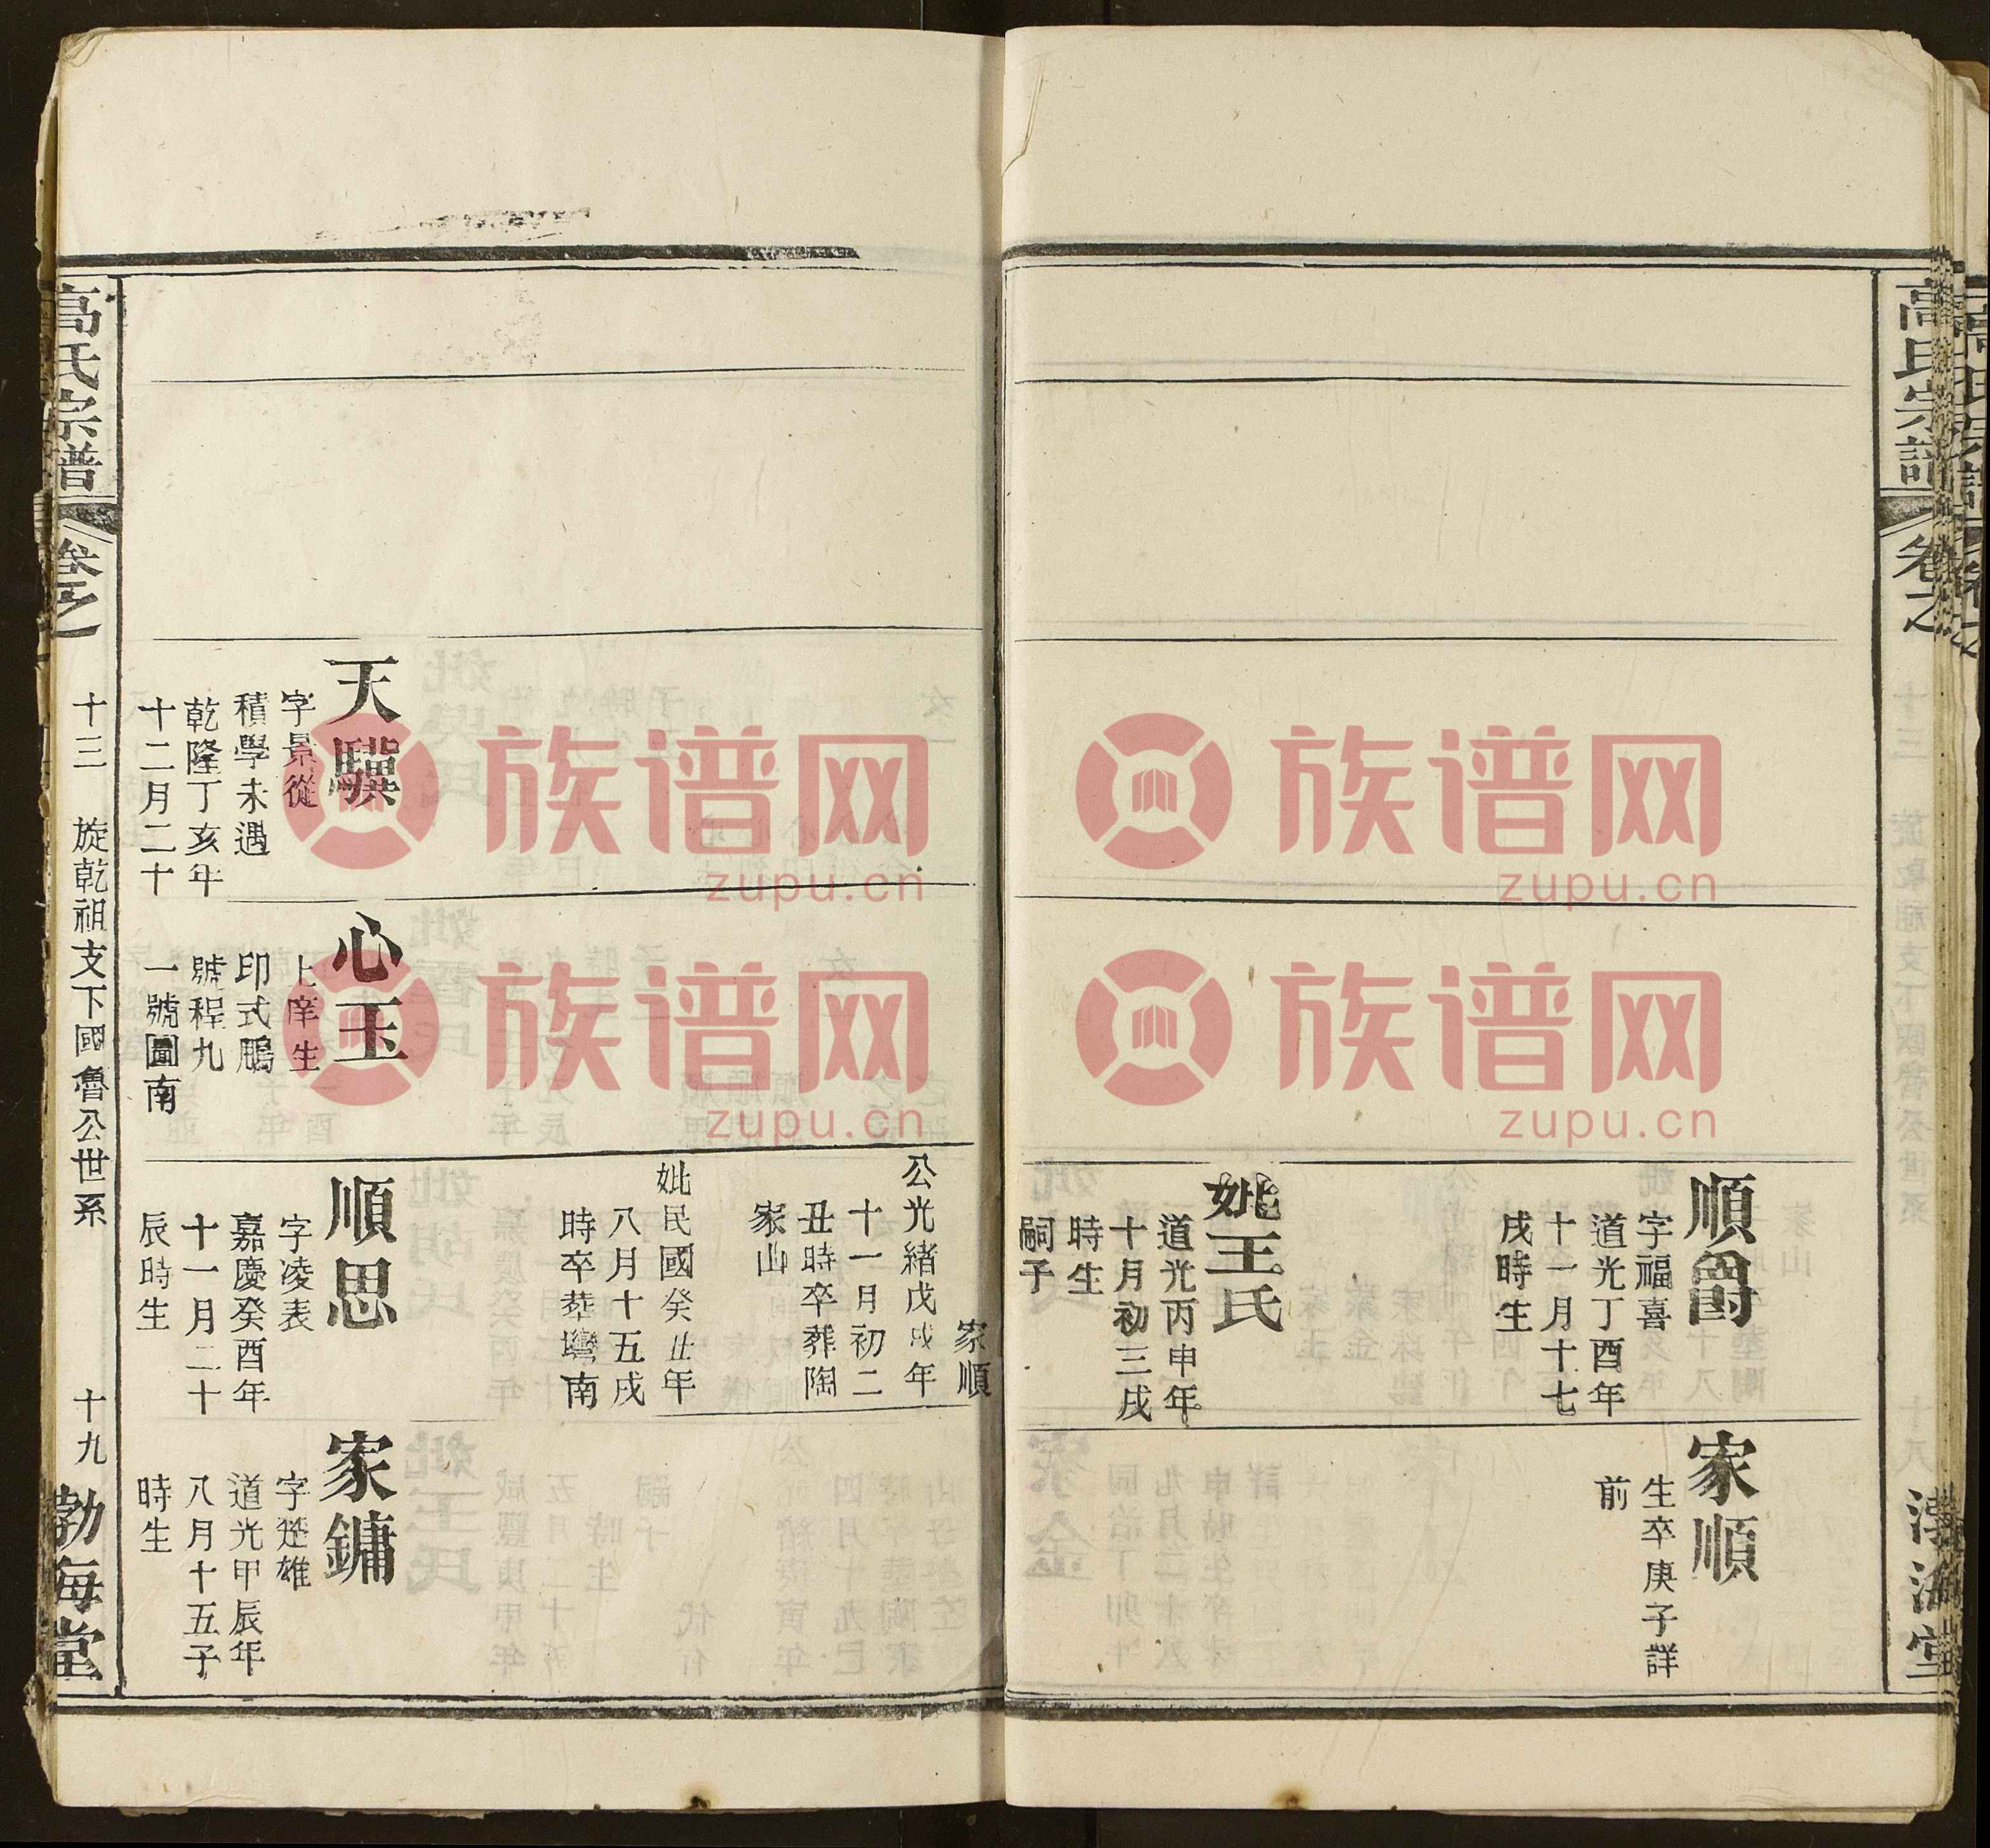 順爵
字福喜
道光丁酉年
十一月十七
戌時生
妣王氏
道光丙申年
十月初三戌
時生
嗣子
家順
生卒庚子詳
前
家順
公光緒戊戌年
十一月初二
丑時卒葬陶
家山
妣民國癸丑年
八月十五戌
時卒葬塆南
天驥
字景從
積學未遇
乾隆丁亥年
十二月二十
心玉
上庠生
印式鵬
號程九
一號圖南
順思
字凌表
嘉慶癸酉年
十一月二十
辰時生
家鏞
字楚雄
道光甲辰年
八月十五子
時生
高氏宗譜
卷之
十三
旋乾祖支下國魯公世系
十九
勃海堂
高氏宗譜
卷之
渤海堂
族谱网
zupu.cn
族谱网
zupu.cn
族谱网
zupu.cn
族谱网
zupu.cn